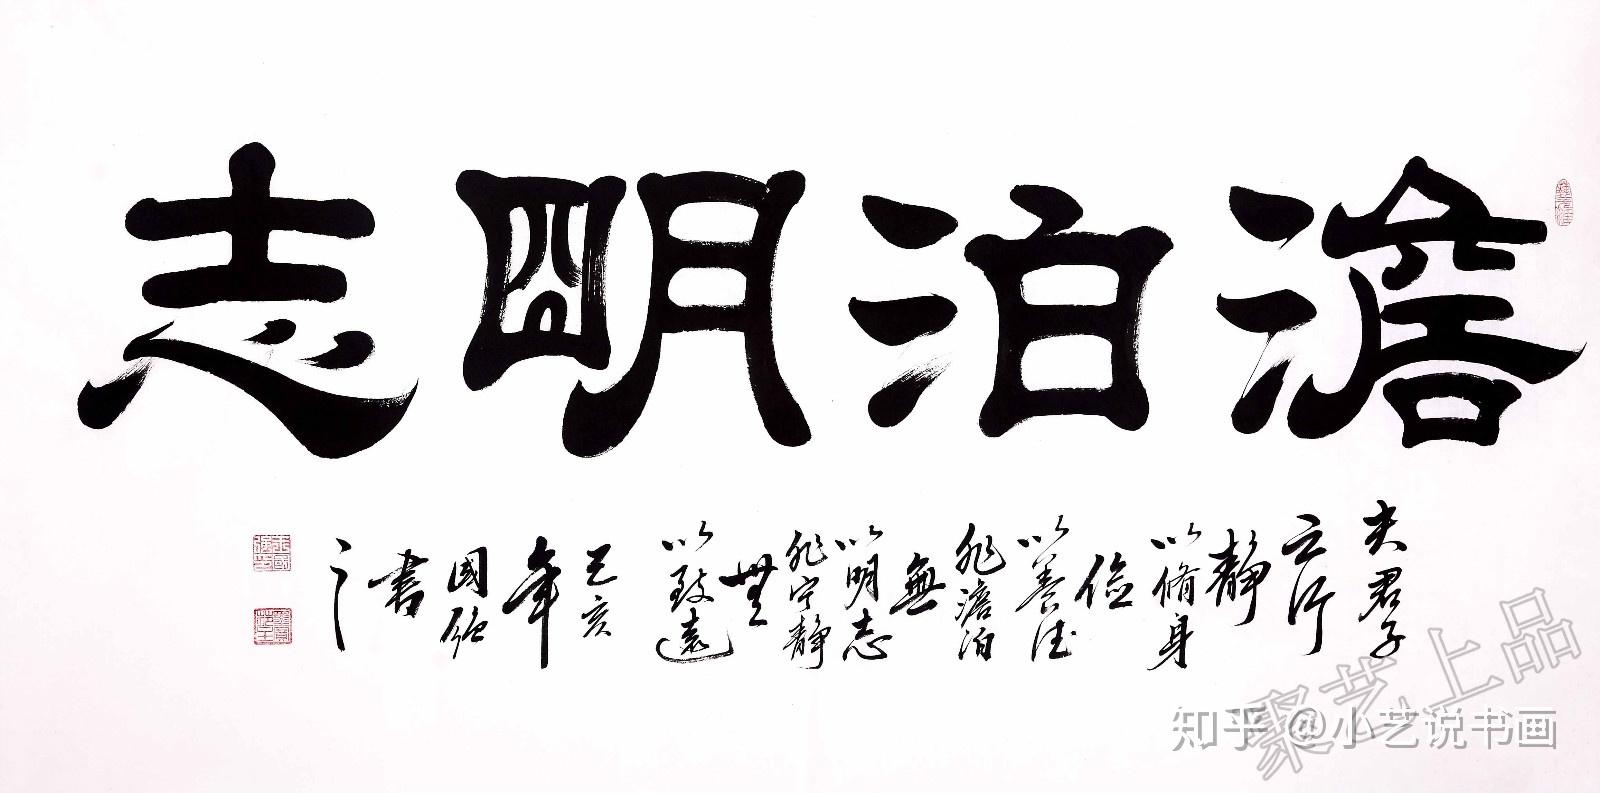 澹泊明志
夫君子
之行
静
以脩身
俭
以养德
非澹泊
無
以明志
非宁静
無
以致遠
己亥
年
國強
書
聚艺上品
知乎 @小艺说书画